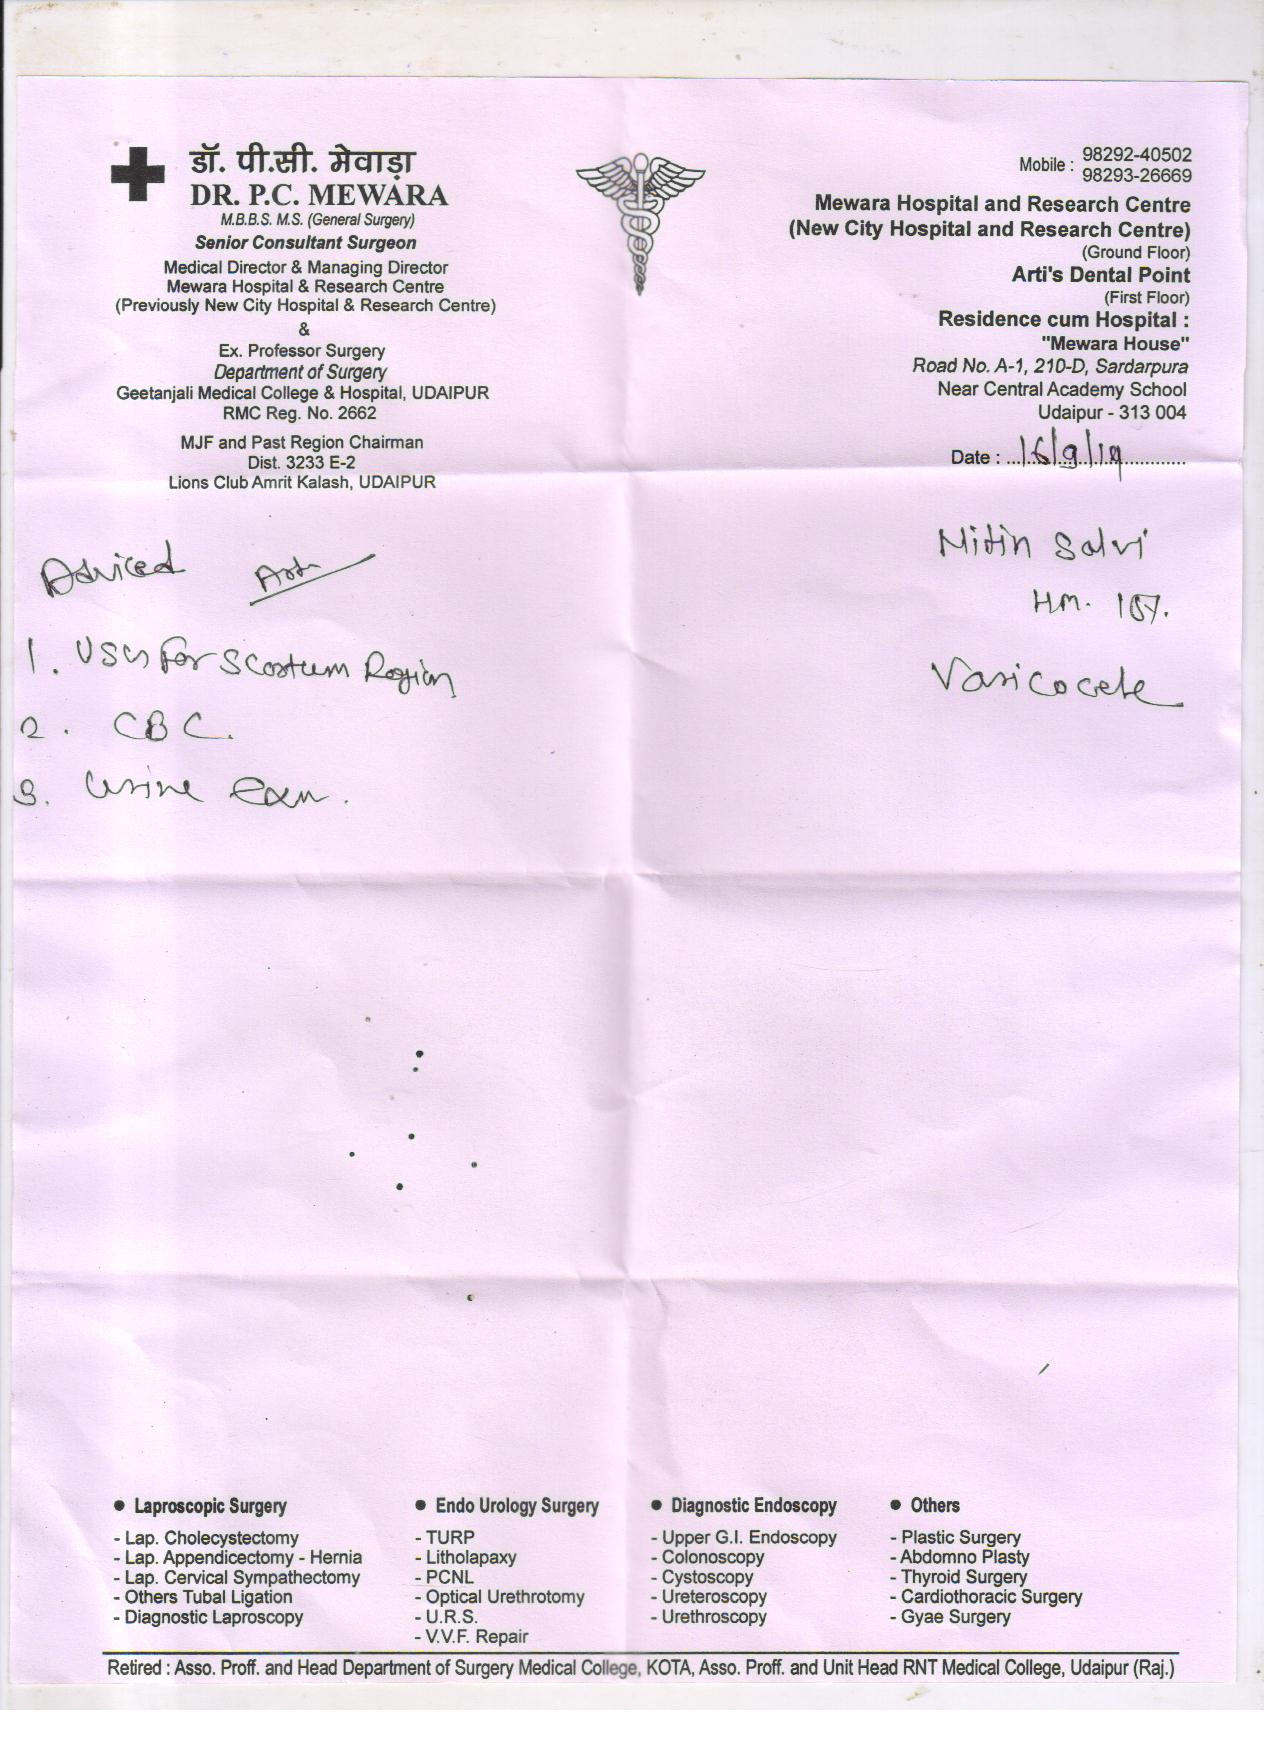 डॉ. पी.सी. मेवाड़ा
DR. P.C. MEWARA
M.B.B.S. M.S. (General Surgery)
Senior Consultant Surgeon
Medical Director & Managing Director
Mewara Hospital & Research Centre
(Previously New City Hospital & Research Centre)
&
Ex. Professor Surgery
Department of Surgery
Geetanjali Medical College & Hospital, UDAIPUR
RMC Reg. No. 2662
MJF and Past Region Chairman
Dist. 3233 E-2
Lions Club Amrit Kalash, UDAIPUR
Mobile : 98292-40502
98293-26669
Mewara Hospital and Research Centre
(New City Hospital and Research Centre)
(Ground Floor)
Arti's Dental Point
(First Floor)
Residence cum Hospital :
"Mewara House"
Road No. A-1, 210-D, Sardarpura
Near Central Academy School
Udaipur - 313 004
Date : 16/9/19
Nitin Salvi
Varicocele
Adviced
1. USG for Scortum Region
2. CBC.
3. Urine Exam.
● Laproscopic Surgery
- Lap. Cholecystectomy
- Lap. Appendicectomy - Hernia
- Lap. Cervical Sympathectomy
- Others Tubal Ligation
- Diagnostic Laproscopy
● Endo Urology Surgery
- TURP
- Litholapaxy
- PCNL
- Optical Urethrotomy
- U.R.S.
- V.V.F. Repair
● Diagnostic Endoscopy
- Upper G.I. Endoscopy
- Colonoscopy
- Cystoscopy
- Ureteroscopy
- Urethroscopy
● Others
- Plastic Surgery
- Abdomno Plasty
- Thyroid Surgery
- Cardiothoracic Surgery
- Gyae Surgery
Retired : Asso. Proff. and Head Department of Surgery Medical College, KOTA, Asso. Proff. and Unit Head RNT Medical College, Udaipur (Raj.)